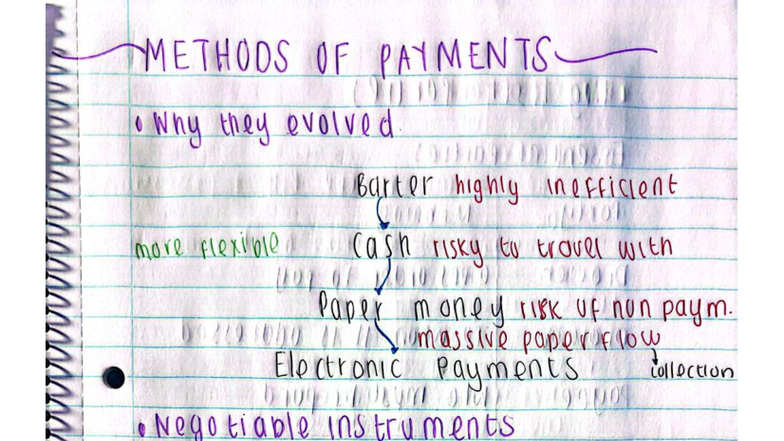 METHODS OF PAYMENTS
• Why they evolved
Barter highly inefficient
more flexible Cash risky to travel with
Paper money risk of non paym.
massive paper flow
Electronic Payments collection
• Negotiable instruments